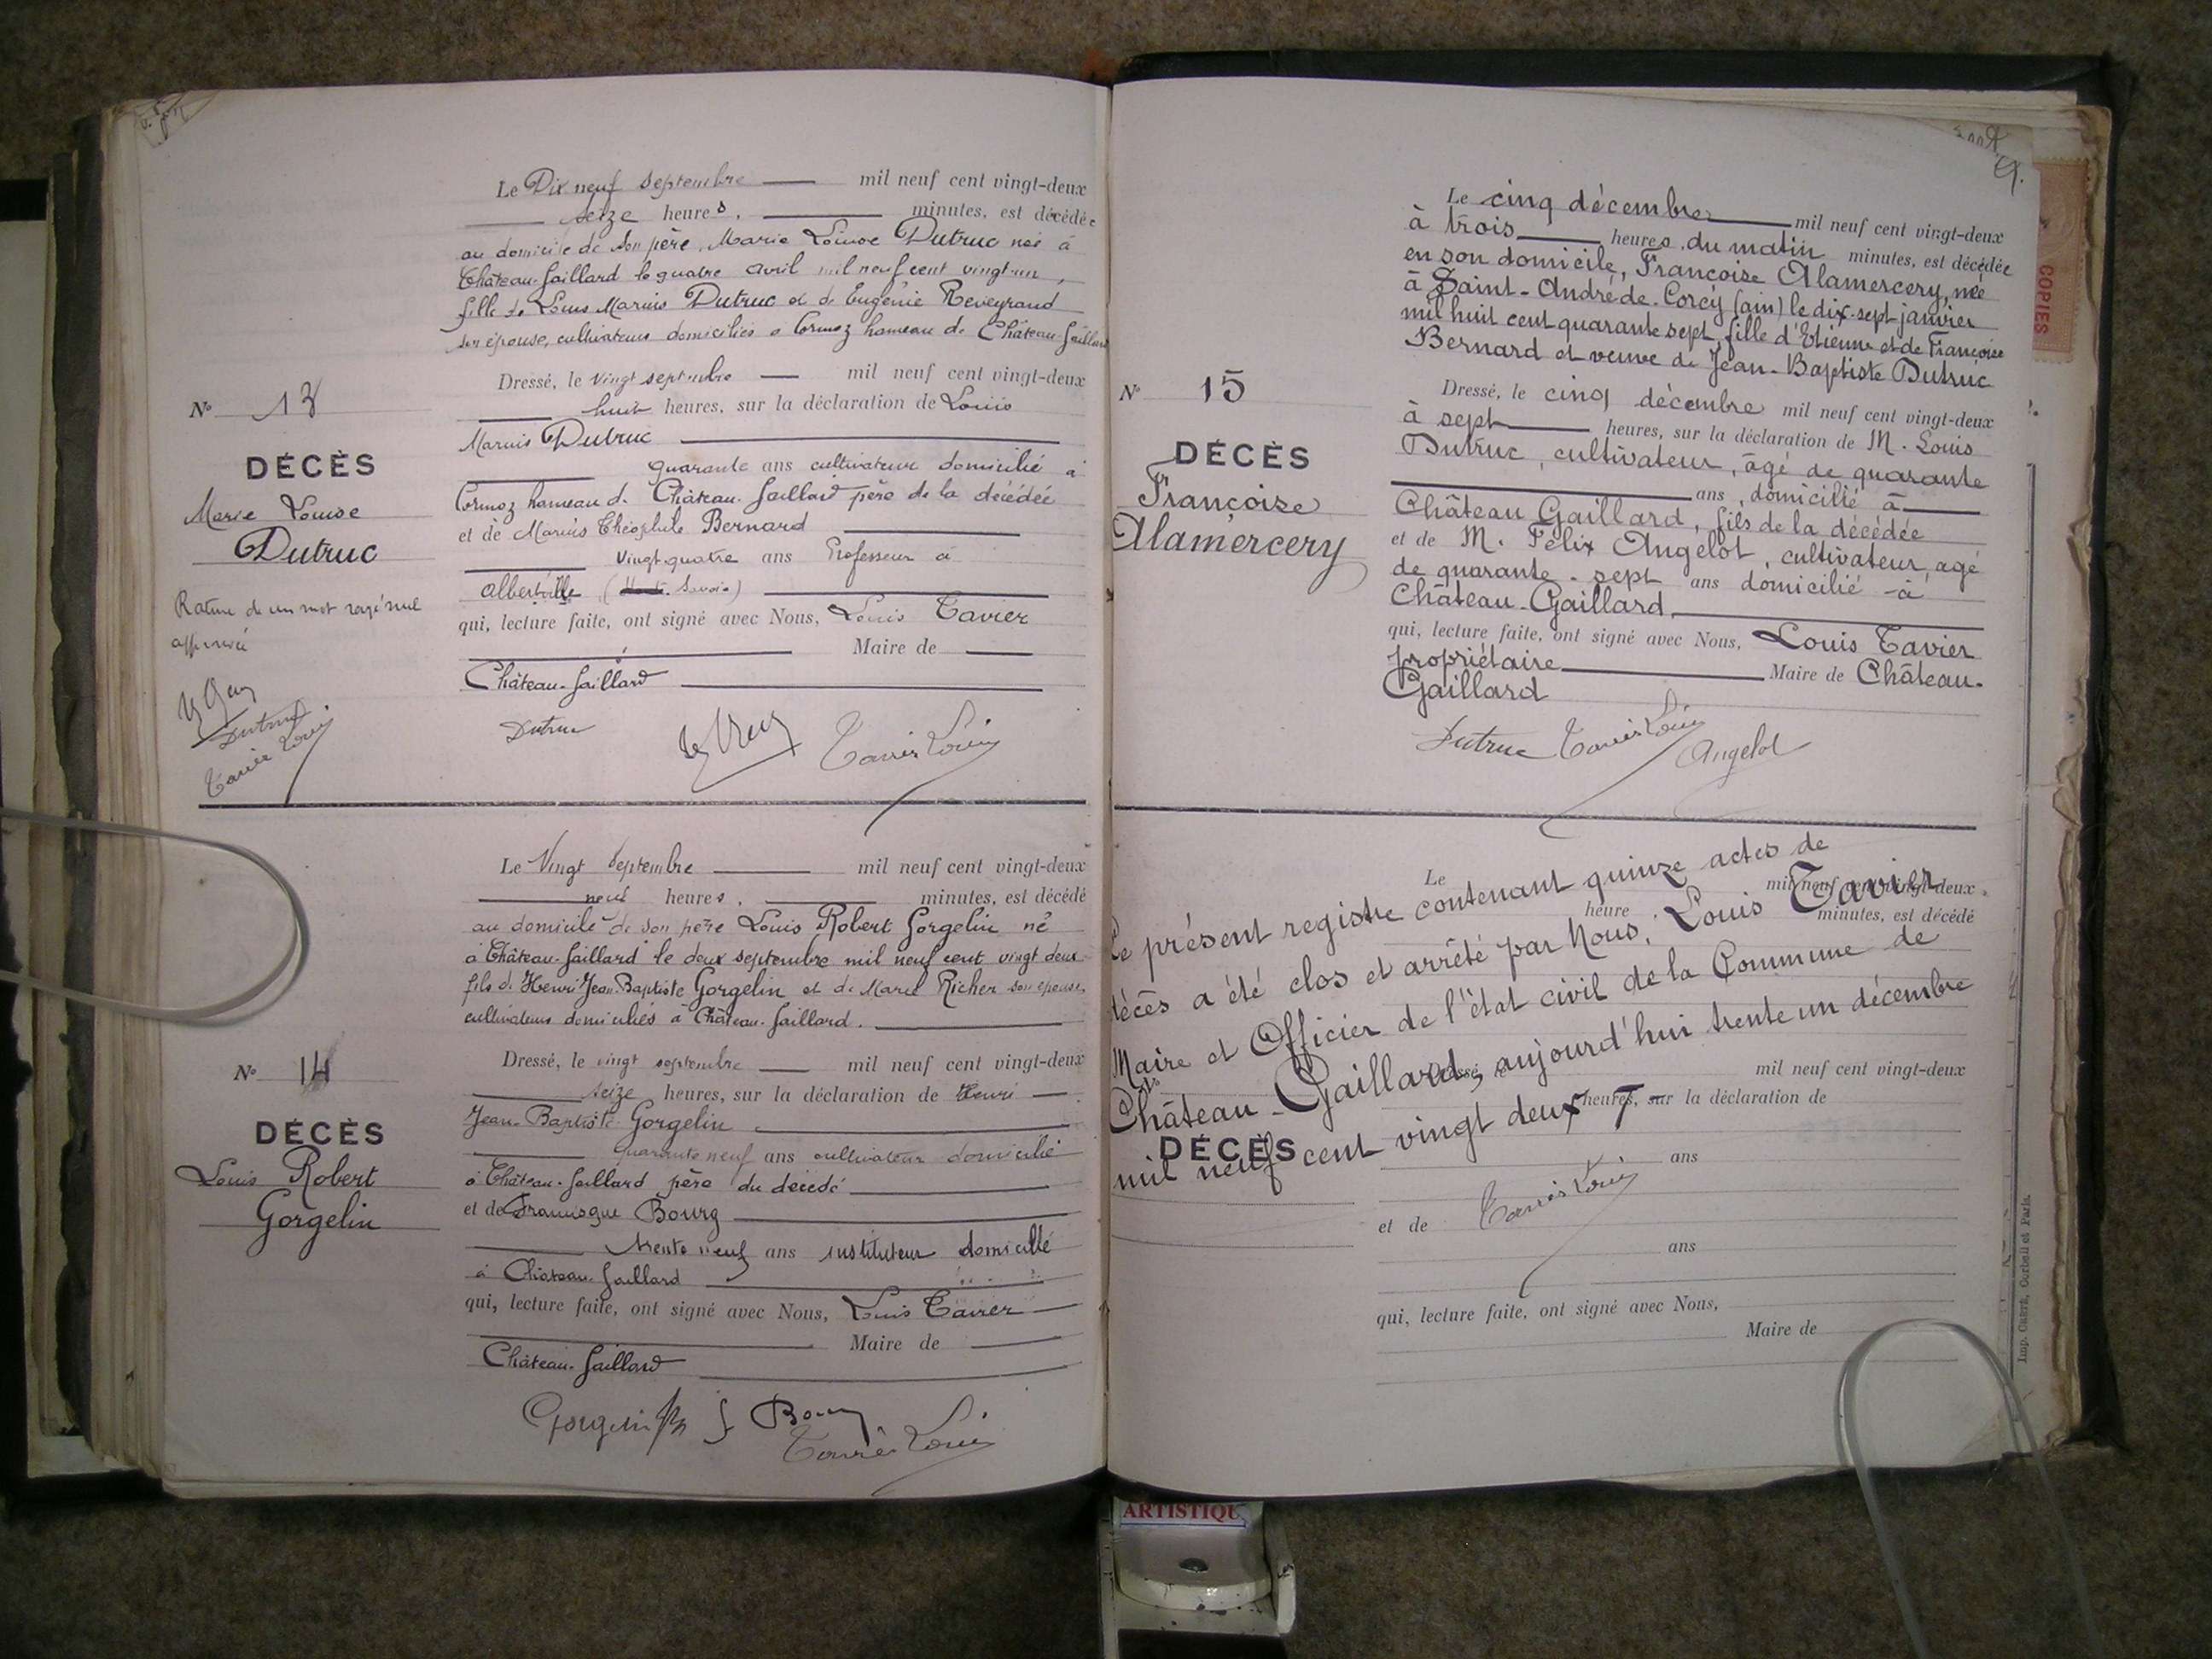 Le Dix neuf septembre mil neuf cent vingt-deux
seize heures, minutes, est décédée
au domicile de son père, Marie Louise Dutruc née à
Château-Gaillard le quatre avril mil neuf cent vingt-un,
fille de Louis Marius Dutruc et de Eugénie Reveyrand
son épouse, cultivateurs domiciliés à Cormoz hameau de Château-Gaillard
Dressé, le vingt septembre mil neuf cent vingt-deux
huit heures, sur la déclaration de Louis
Marius Dutruc
quarante ans cultivateur domicilié à
Cormoz hameau de Château-Gaillard père de la décédée
et de Marius Théophile Bernard
vingt quatre ans Professeur à
Albertville (Haute-Savoie)
qui, lecture faite, ont signé avec Nous, Louis Tavier
Maire de
Château-Gaillard
N° 13
DÉCÈS
Marie Louise
Dutruc
Rature de un mot rayé nul
approuvé
Dutruc
Tavier Louis
Dutruc
Tavier Louis
Le Vingt septembre mil neuf cent vingt-deux
neuf heures, minutes, est décédé
au domicile de son père Louis Robert Gorgelin né
à Château-Gaillard le deux septembre mil neuf cent vingt deux
fils de Henri Jean Baptiste Gorgelin et de Marie Richer son épouse,
cultivateurs domiciliés à Château-Gaillard.
Dressé, le vingt septembre mil neuf cent vingt-deux
seize heures, sur la déclaration de Henri
Jean-Baptiste Gorgelin
quarante neuf ans cultivateur domicilié
à Château-Gaillard père du décédé
et de Francisque Bourg
trente neuf ans instituteur domicilié
à Château-Gaillard
qui, lecture faite, ont signé avec Nous, Louis Tavier
Maire de
Château-Gaillard
N° 14
DÉCÈS
Louis Robert
Gorgelin
Tavier Louis
Le cinq décembre mil neuf cent vingt-deux
à trois heures du matin minutes, est décédée
en son domicile, Françoise Alamercery, née
à Saint-André-de-Corcy (ain) le dix-sept janvier
mil huit cent quarante sept, fille d'Etienne et de Françoise
Bernard et veuve de Jean-Baptiste Dutruc
Dressé, le cinq décembre mil neuf cent vingt-deux
à sept heures, sur la déclaration de M. Louis
Dutruc, cultivateur, âgé de quarante
ans, domicilié à
Château Gaillard, fils de la décédée
et de M. Félix Angelot, cultivateur, agé
de quarante-sept ans domicilié à
Château-Gaillard
qui, lecture faite, ont signé avec Nous, Louis Tavier
propriétaire Maire de Château-
Gaillard
N° 15
DÉCÈS
Françoise
Alamercery
Dutruc Tavier Louis Angelot
Le présent registre contenant quinze actes de
décès a été clos et arrêté par Nous, Louis Tavier
Maire et Officier de l'état civil de la Commune de
Château-Gaillard, aujourd'hui trente un décembre
mil neuf cent vingt deux
Tavier Louis
Le mil neuf cent vingt-deux
heure, minutes, est décédé
N°
DÉCÈS
Dressé, le mil neuf cent vingt-deux
heures, sur la déclaration de
ans
et de
ans
qui, lecture faite, ont signé avec Nous,
Maire de
COPIES
ARTISTIQU